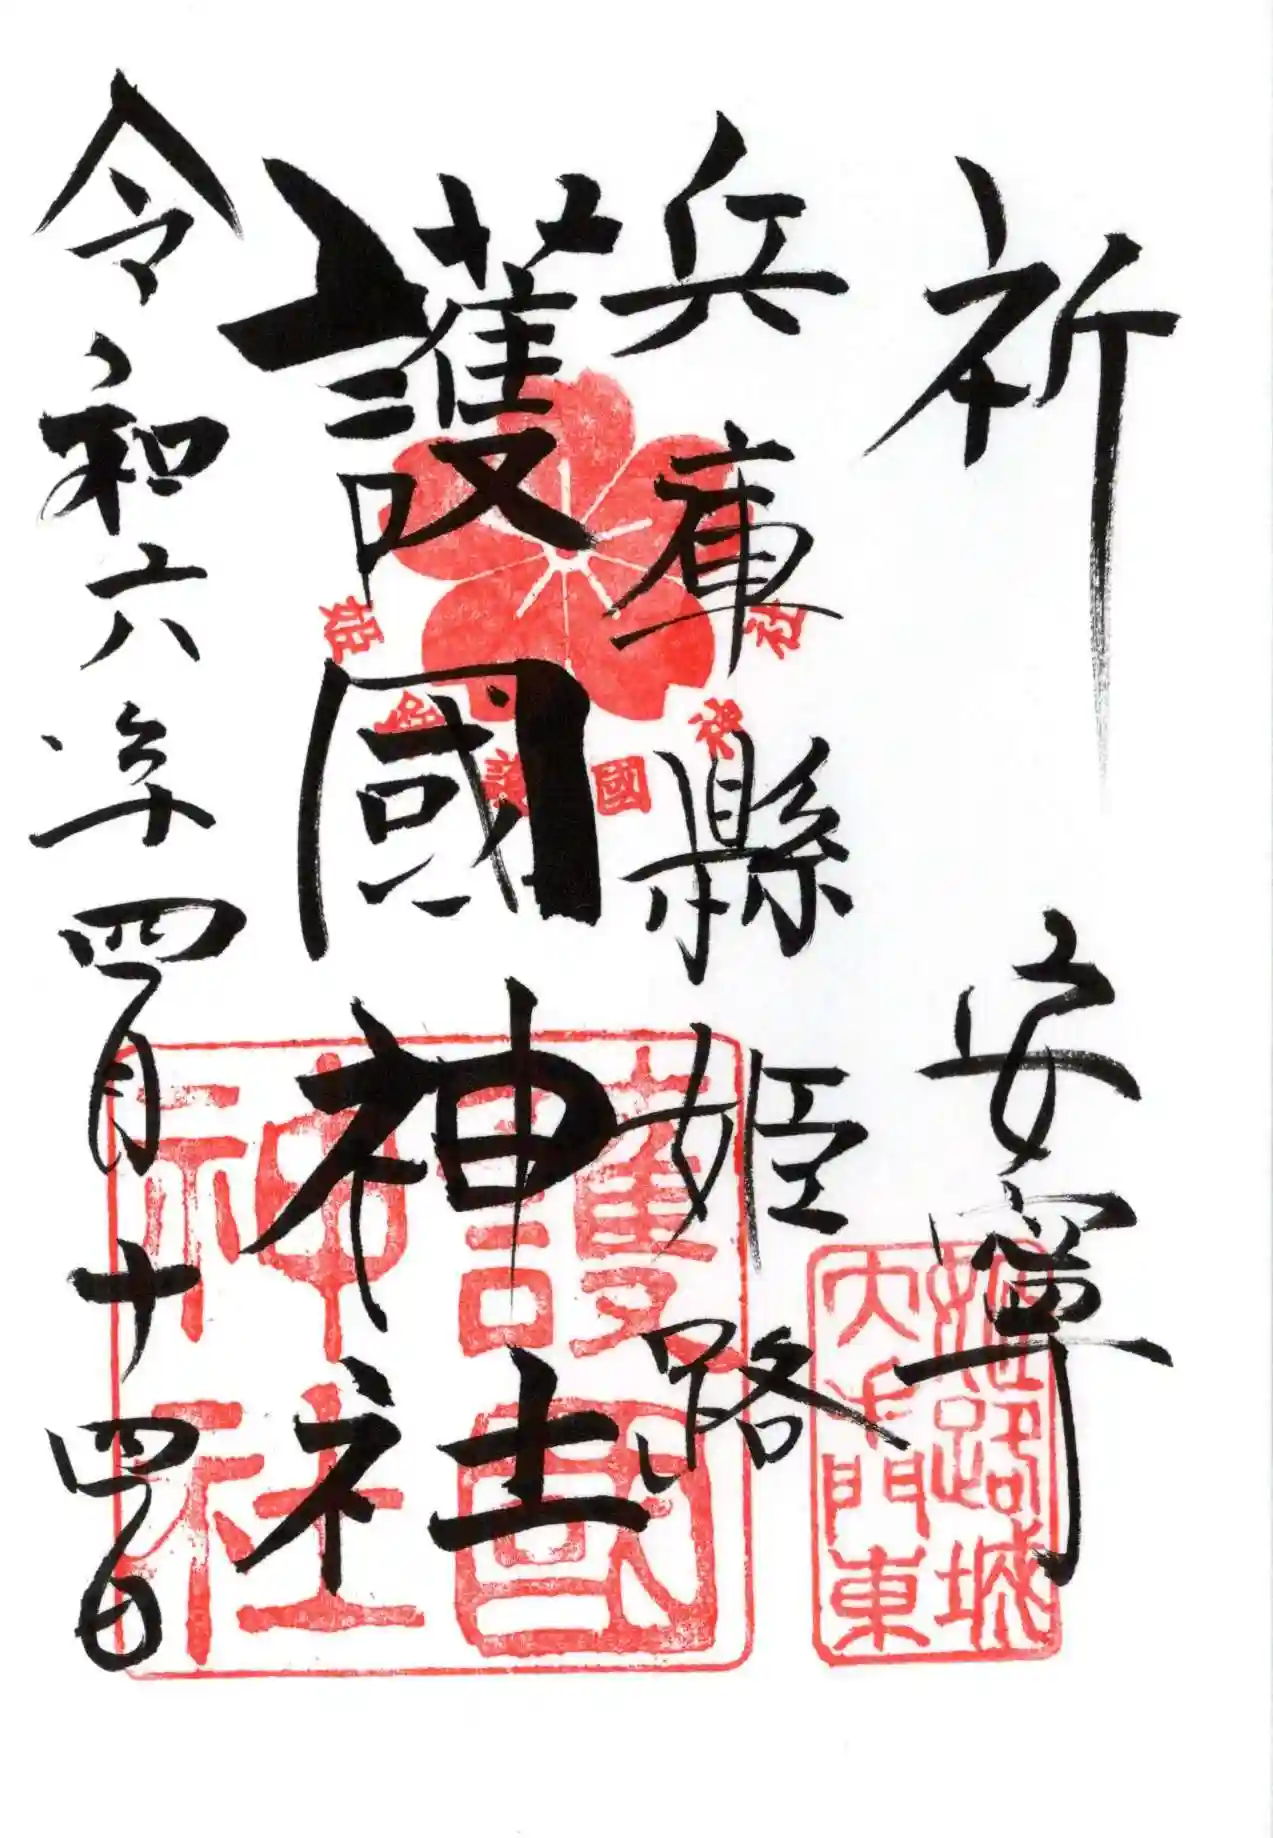 祈 安寧
兵庫縣姫路
護國神社
令和六年四月十四日
姫路護國神社
護國神社
姫路城
大手門東